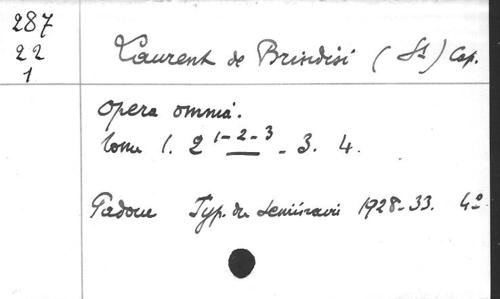 287
22
1
Laurent de Brindisi (St) Cap.
Opera omnia.
Tome 1. 2 1-2-3 - 3. 4.
Padoue Typ. du Seminario 1928-33. 4º